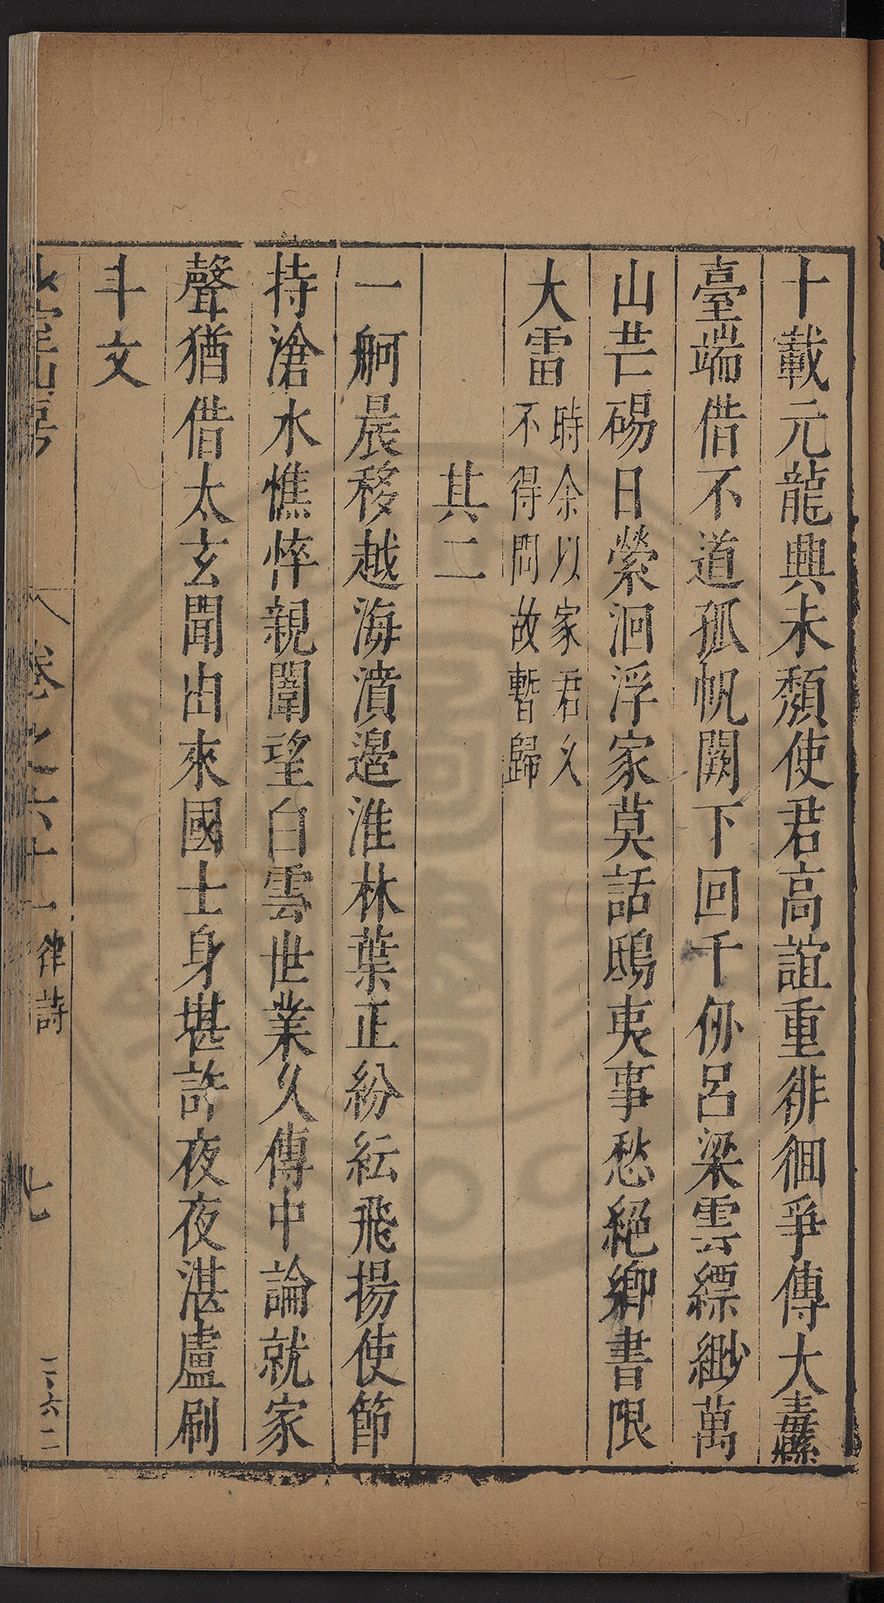 十載元龍興未頹使君高誼重徘徊爭傳大纛
臺端借不道孤帆闕下回千仭呂梁雲縹緲萬
山芒碭日縈洄浮家莫話鴟夷事愁絕鄉書限
大雷時余以家君久
不得問故暫歸
其二
一舸晨移越海濆邉淮林葉正紛紜飛揚使節
持滄水憔悴親闈望白雲世業久傳中論就家
聲猶借太玄聞由來國士身堪許夜夜湛盧刷
斗文
卷之六十一 律詩 七 二六二